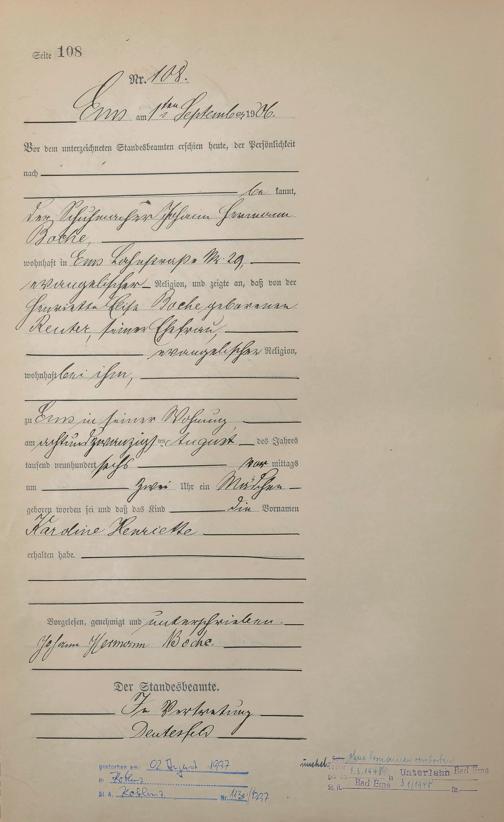 Seite 108
Nr. 108.
Ems am 1ten September 1906.
Vor dem unterzeichneten Standesbeamten erschien heute, der Persönlichkeit
nach
be kannt,
der Schuhmacher Johann Hermann
Boche,
wohnhaft in Ems Lahnstraße Nr. 29,
evangelischer Religion, und zeigte an, daß von der
Henriette Elise Boche geborenen
Reuter, seiner Ehefrau,
evangelischer Religion,
wohnhaft bei ihm,
zu Ems in seiner Wohnung
am achtundzwanzigsten August des Jahres
tausend neunhundert sechs vor mittags
um zwei Uhr ein Mädchen
geboren worden sei und daß das Kind die Vornamen
Karoline Henriette
erhalten habe.
Vorgelesen, genehmigt und unterschrieben.
Johann Hermann Boche.
Der Standesbeamte.
In Vertretung
gestorben am: 02 August 1997
in Koblenz
St. A. Koblenz Nr. /1997
Unterlahn Bad Ems
Bad Ems
St. A. Nr.